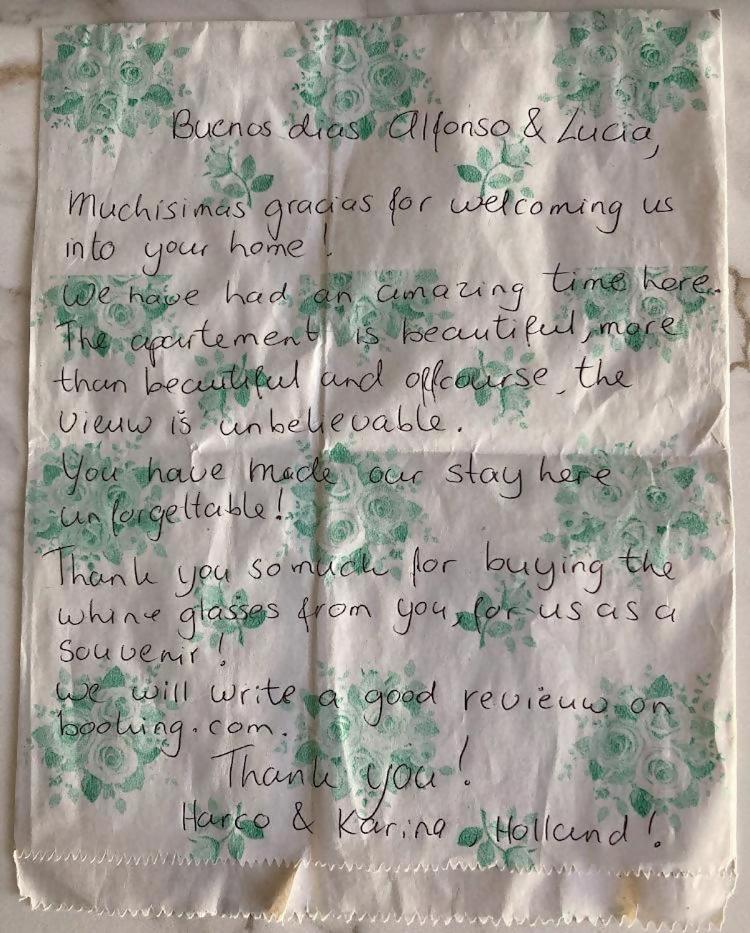 Buenos dias Alfonso & Lucia,
Muchisimas gracias for welcoming us
into your home!
We have had an amazing time here.
The apartement is beautiful, more
than beautiful and offcourse, the
vieuw is unbelievable.
You have made our stay here
unforgettable!
Thank you so much for buying the
whine glasses from you, for us as a
souvenir!
We will write a good revieuw on
booking.com.
Thank you!
Harco & Karina, Holland!